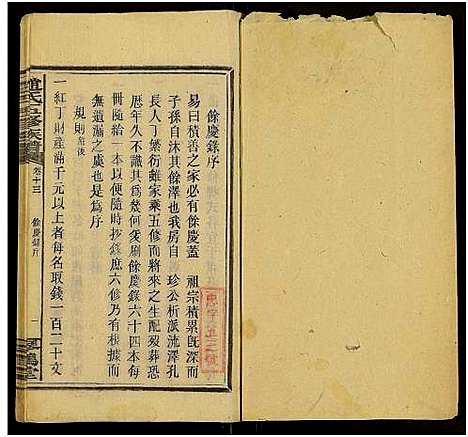 餘慶錄序
易曰積善之家必有餘慶蓋　祖宗積累既深而
子孫自沐其餘澤也我房自　珍公析派流澤孔
長人丁繁衍雖家乗五修而將來之生配歿葬恐
歷年久不識其為幾何爰刷餘慶錄六十四本每
冊隨給一本以便隨時抄錄庶六修乃有根據而
無遺漏之虞也是為序
規則居後
一紅丁財產滿千元以上者每名取錢一百二十文
氏五修族譜
卷十三
餘慶錄序
一